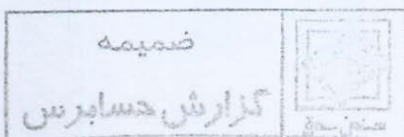 ضمیمه
گزارش حسابرس